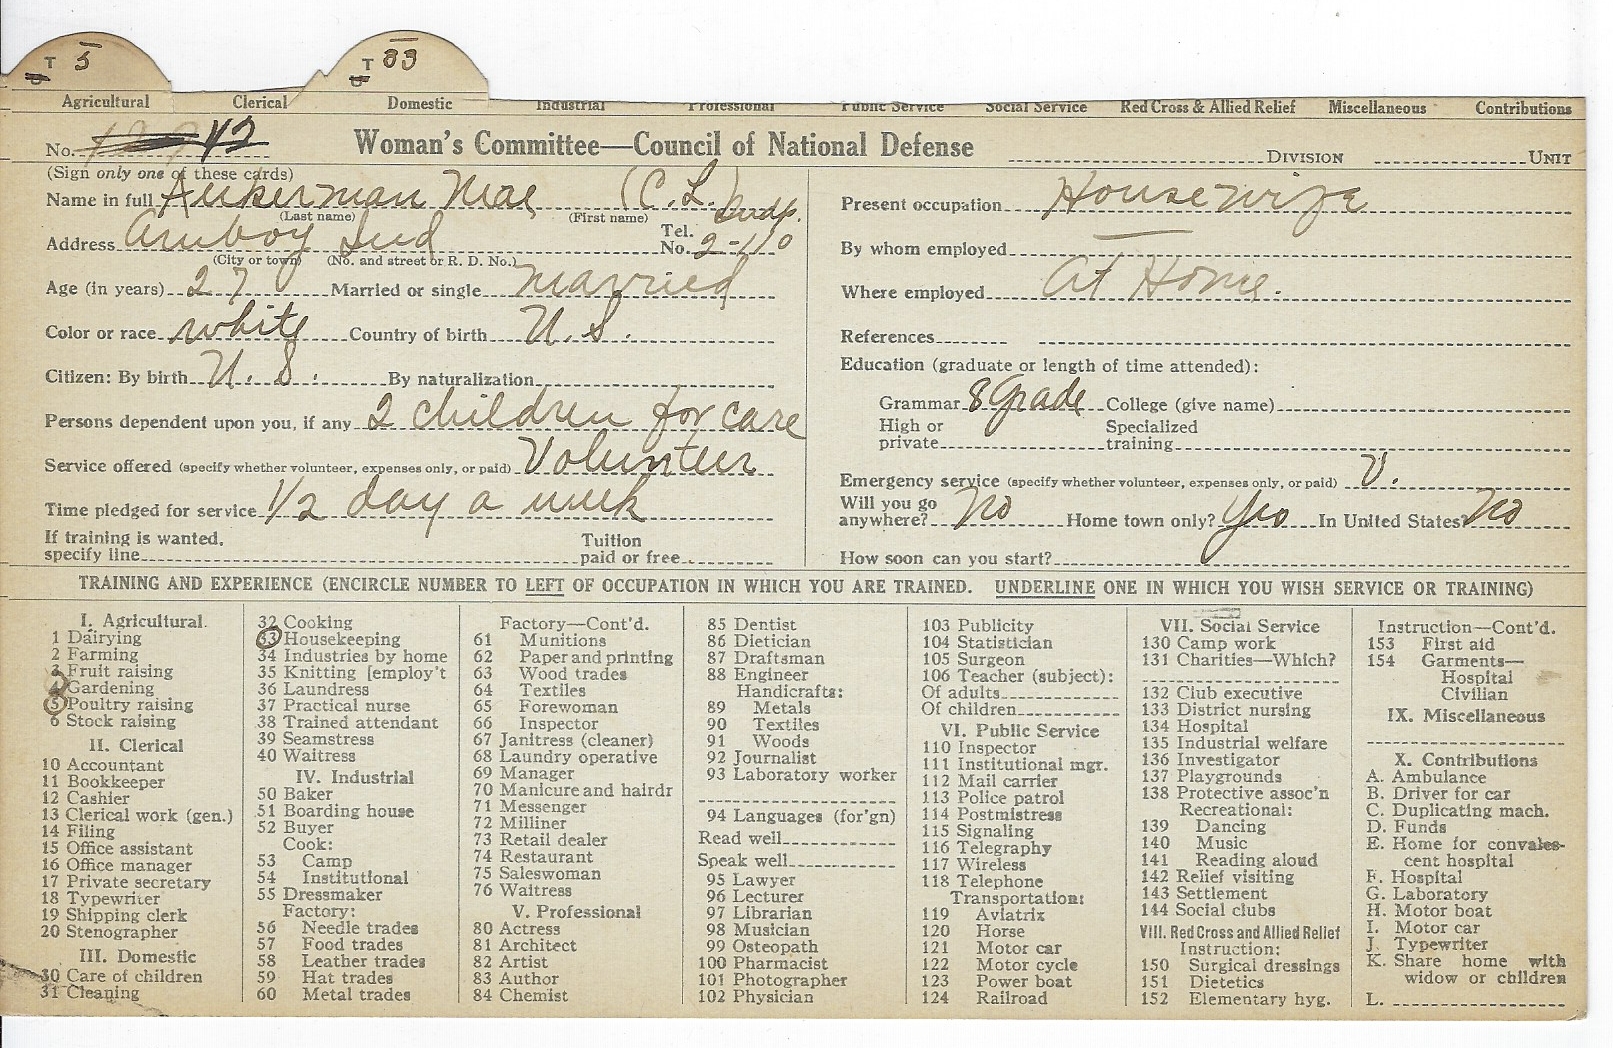 T 5 T 33
Agricultural Clerical Domestic Industrial Professional Public Service Social Service Red Cross & Allied Relief Miscellaneous Contributions
No. 42 Woman's Committee—Council of National Defense DIVISION UNIT
(Sign only one of these cards)
Name in full Aukerman Mae (C. L.)
(Last name) (First name)
Indp.
Address Amboy Ind Tel. No. 2-110
(City or town) (No. and street or R. D. No.)
Age (in years) 27 Married or single married
Color or race white Country of birth U. S.
Citizen: By birth U. S. By naturalization
Persons dependent upon you, if any 2 children for care
Service offered (specify whether volunteer, expenses only, or paid) Volunteer
Time pledged for service 1/2 day a week
If training is wanted, specify line Tuition paid or free
Present occupation Housewife
By whom employed
Where employed At Home.
References
Education (graduate or length of time attended):
Grammar 8 Grade College (give name)
High or private Specialized training
Emergency service (specify whether volunteer, expenses only, or paid) V.
Will you go anywhere? No Home town only? Yes In United States? No
How soon can you start?
TRAINING AND EXPERIENCE (ENCIRCLE NUMBER TO LEFT OF OCCUPATION IN WHICH YOU ARE TRAINED. UNDERLINE ONE IN WHICH YOU WISH SERVICE OR TRAINING)
I. Agricultural.
1 Dairying
2 Farming
3 Fruit raising
4 Gardening
5 Poultry raising
6 Stock raising
II. Clerical
10 Accountant
11 Bookkeeper
12 Cashier
13 Clerical work (gen.)
14 Filing
15 Office assistant
16 Office manager
17 Private secretary
18 Typewriter
19 Shipping clerk
20 Stenographer
III. Domestic
30 Care of children
31 Cleaning
32 Cooking
33 Housekeeping
34 Industries by home
35 Knitting [employ't
36 Laundress
37 Practical nurse
38 Trained attendant
39 Seamstress
40 Waitress
IV. Industrial
50 Baker
51 Boarding house
52 Buyer
Cook:
53 Camp
54 Institutional
55 Dressmaker
Factory:
56 Needle trades
57 Food trades
58 Leather trades
59 Hat trades
60 Metal trades
Factory—Cont'd.
61 Munitions
62 Paper and printing
63 Wood trades
64 Textiles
65 Forewoman
66 Inspector
67 Janitress (cleaner)
68 Laundry operative
69 Manager
70 Manicure and hairdr
71 Messenger
72 Milliner
73 Retail dealer
74 Restaurant
75 Saleswoman
76 Waitress
V. Professional
80 Actress
81 Architect
82 Artist
83 Author
84 Chemist
85 Dentist
86 Dietician
87 Draftsman
88 Engineer
Handicrafts:
89 Metals
90 Textiles
91 Woods
92 Journalist
93 Laboratory worker
94 Languages (for'gn)
Read well
Speak well
95 Lawyer
96 Lecturer
97 Librarian
98 Musician
99 Osteopath
100 Pharmacist
101 Photographer
102 Physician
103 Publicity
104 Statistician
105 Surgeon
106 Teacher (subject):
Of adults
Of children
VI. Public Service
110 Inspector
111 Institutional mgr.
112 Mail carrier
113 Police patrol
114 Postmistress
115 Signaling
116 Telegraphy
117 Wireless
118 Telephone
Transportation:
119 Aviatrix
120 Horse
121 Motor car
122 Motor cycle
123 Power boat
124 Railroad
VII. Social Service
130 Camp work
131 Charities—Which?
132 Club executive
133 District nursing
134 Hospital
135 Industrial welfare
136 Investigator
137 Playgrounds
138 Protective assoc'n
Recreational:
139 Dancing
140 Music
141 Reading aloud
142 Relief visiting
143 Settlement
144 Social clubs
VIII. Red Cross and Allied Relief
Instruction:
150 Surgical dressings
151 Dietetics
152 Elementary hyg.
Instruction—Cont'd.
153 First aid
154 Garments—
Hospital
Civilian
IX. Miscellaneous
X. Contributions
A. Ambulance
B. Driver for car
C. Duplicating mach.
D. Funds
E. Home for convales-
cent hospital
F. Hospital
G. Laboratory
H. Motor boat
I. Motor car
J. Typewriter
K. Share home with
widow or children
L.